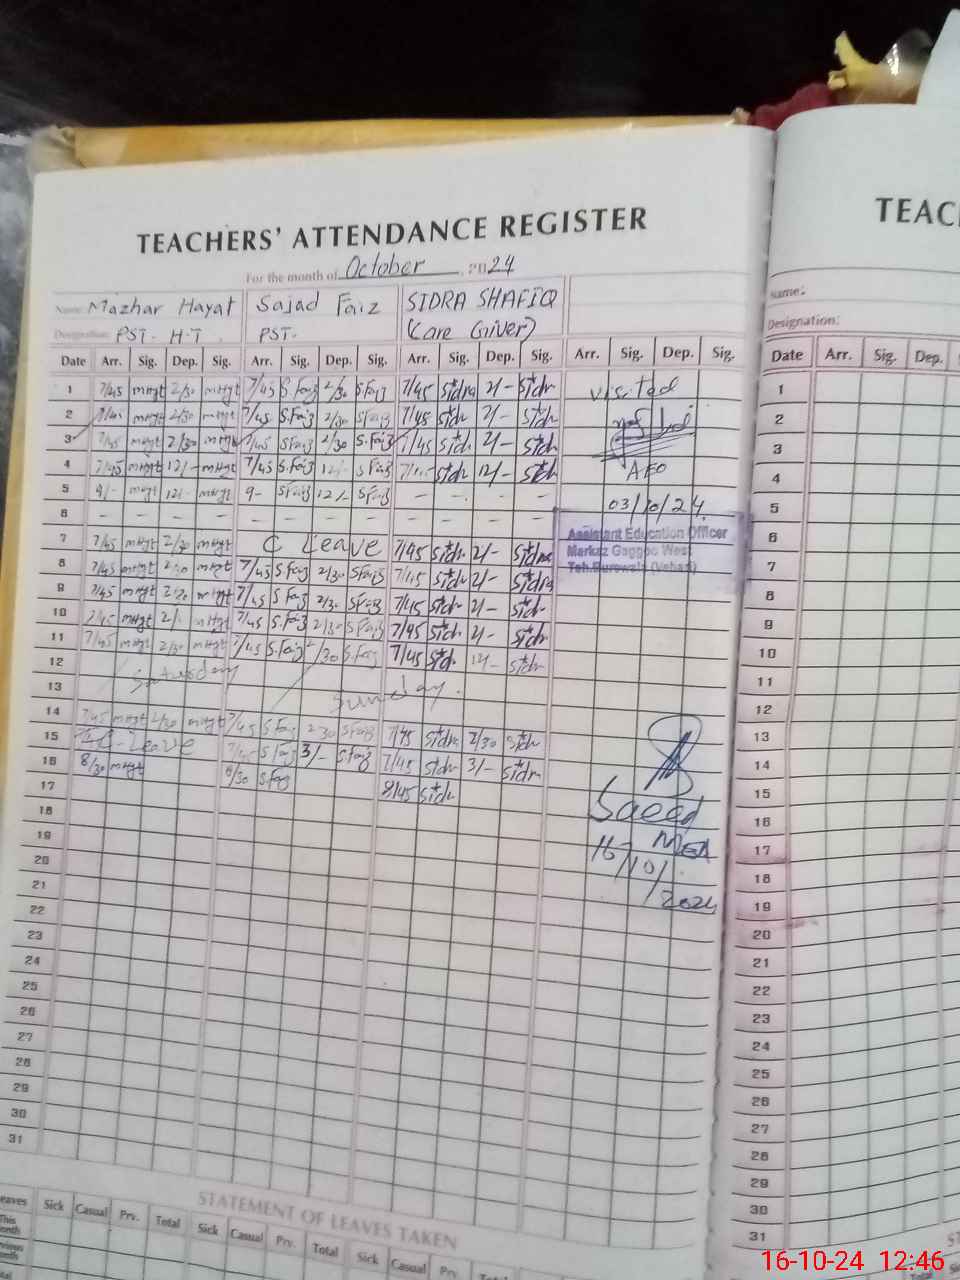 TEACHERS' ATTENDANCE REGISTER
For the month of October, 2024
Name: Mazhar Hayat Sajad Faiz SIDRA SHAFIQ
Designation: PST. H.T. PST. (Care Giver)
Date Arr. Sig. Dep. Sig. Arr. Sig. Dep. Sig. Arr. Sig. Dep. Sig. Arr. Sig. Dep. Sig.
1 7/45 mHyt 2/30 mHyt 7/45 S.Faiz 2/30 S.Faiz 7/45 Sidra 2/- Sidr
2 7/45 mHyt 2/30 mHyt 7/45 S.Faiz 2/30 S.Faiz 7/45 Sidr 2/- Sidr
3 7/45 mHyt 2/30 mHyt 7/45 S.Faiz 2/30 S.Faiz 7/45 Sidr 2/- Sidr
4 7/45 mHyt 12/- mHyt 7/45 S.Faiz 12/- S.Faiz Sidr 12/- Sidr
5 9/- mHyt 12/- mHyt 9- S.Faiz 12/- S.Faiz - - - -
6 - - - - - - - -
7 7/45 mHyt 2/30 mHyt C Leave 7/45 Sidr 2/- Sidra
8 7/45 mHyt 2/30 mHyt 7/45 S.Faiz 2/30 S.Faiz 7/45 Sidr 2/- Sidra
9 7/45 mHyt 2/30 mHyt 7/45 S.Faiz 2/30 S.Faiz 7/45 Sidr 2/- Sidr
10 7/45 mHyt 2/- mHyt 7/45 S.Faiz 2/30 S.Faiz 7/45 Sidr 2/- Sidr
11 7/45 mHyt 2/30 mHyt 7/45 S.Faiz 2/30 S.Faiz 7/45 Sidr 12/- Sidr
12 Saturday
13 Sunday.
14 7/45 mHyt 2/30 mHyt 7/45 S.Faiz 2/30 S.Faiz 7/45 Sidra 2/30 Sidr
15 C-Leave 7/45 S.Faiz 3/- S.Faiz 7/45 Sidr 3/- Sidra
16 8/30 mHyt 8/30 S.Faiz 8/45 Sidr
17
18
19
20
21
22
23
24
25
26
27
28
29
30
31
visited
AEO
03/10/24
Assistant Education Officer
Markaz Gaggoo West
Teh.Burewala (Vehari)
Saeed
MEA
16/10/
2024
STATEMENT OF LEAVES TAKEN
Leaves Sick Casual Prv. Total Sick Casual Prv. Total Sick Casual Prv. Total
This
Month
TEAC
Name:
Designation:
Date Arr. Sig. Dep.
1
2
3
4
5
6
7
8
9
10
11
12
13
14
15
16
17
18
19
20
21
22
23
24
25
26
27
28
29
30
31
16-10-24 12:46